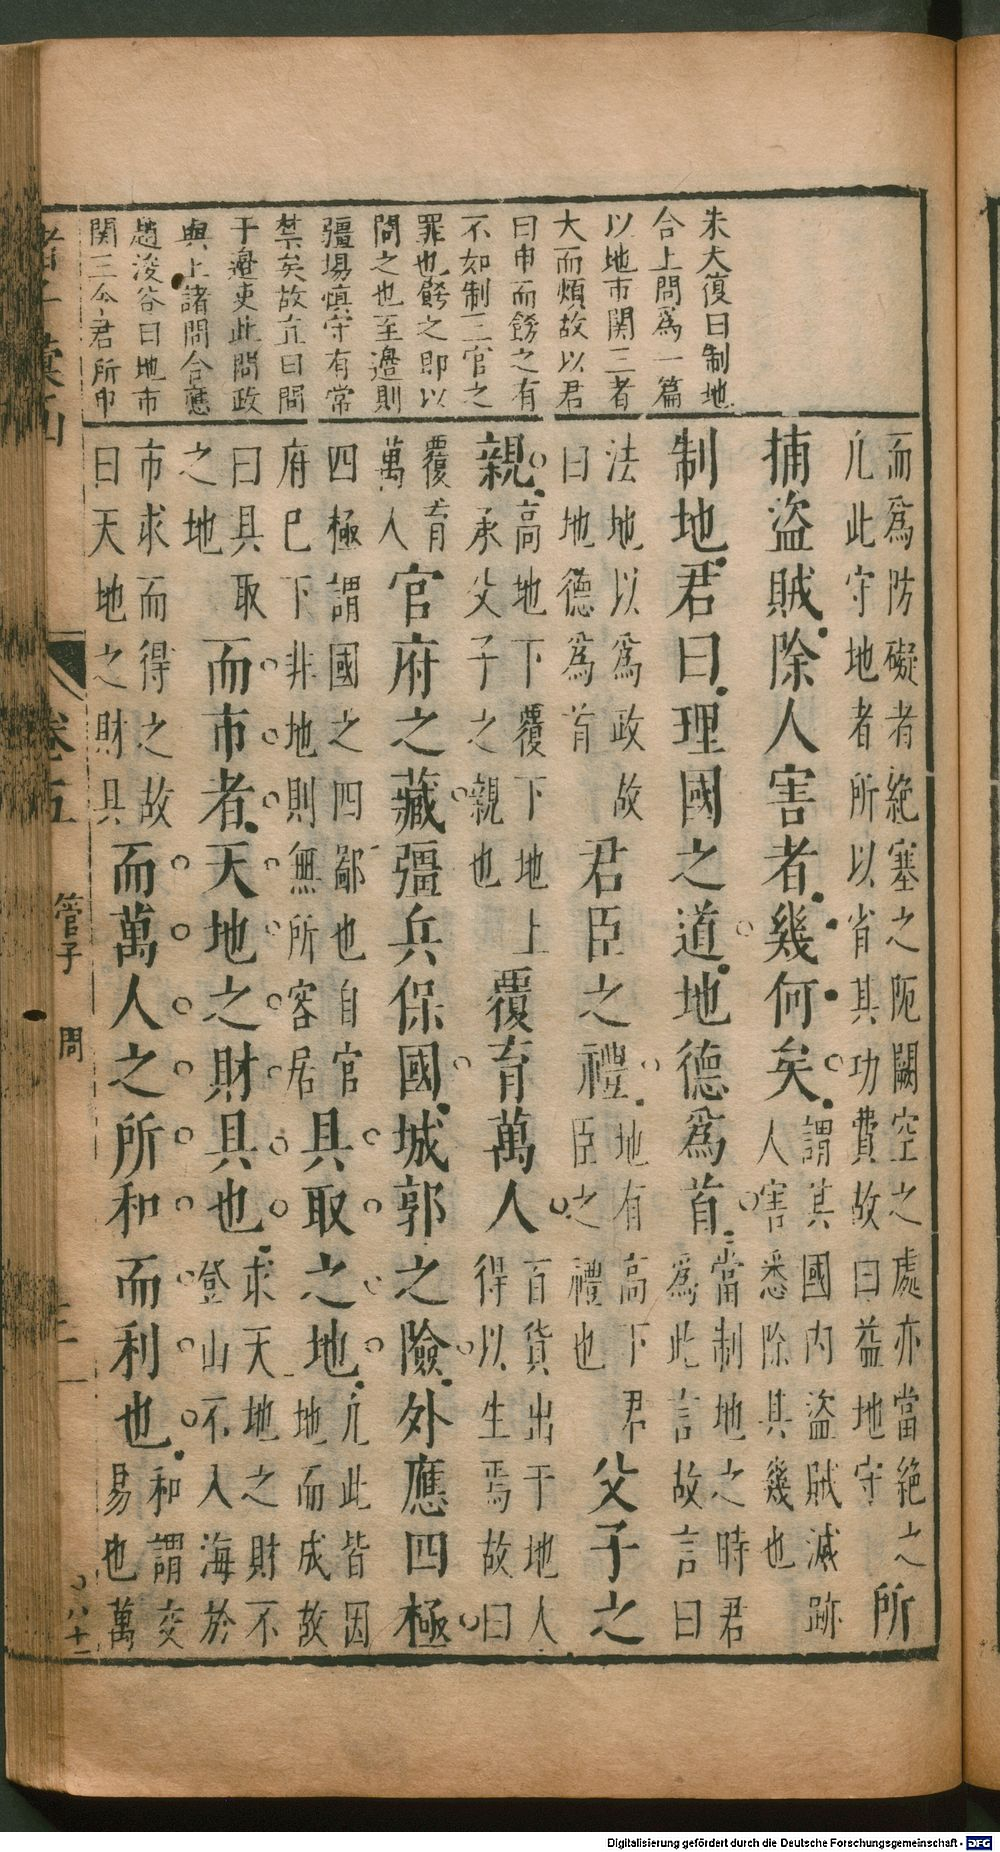 朱大復曰制地
合上問爲一篇
以地市関三者
大而煩故以君
曰申而飭之有
不如制三官之
罪也飭之即以
問之也至邊則
疆場慎守有常
禁矣故直曰問
于邊吏此問政
與上諸問合應
趙浚谷曰地市
関三令君所申
而爲防礙者絶塞之阨闕空之處亦當絶之
凢此守地者所以省其功費故曰益地守
所
捕盜賊除人害者幾何矣
謂其國内盜賊滅跡
人害悉除其幾也
制地君曰理國之道地德爲首
當制地之時君
爲此言故言曰
法地以爲政故
曰地德爲首
君臣之禮
地有高下君
臣之禮也
父子之
親
高地下覆下地上
承父子之親也
覆育萬人
百貨出于地人
得以生焉故曰
覆育
萬人
官府之藏疆兵保國城郭之險外應四極
四極謂國之四鄙也自官
府已下非地則無所容居
具取之地
凢此皆因
地而成故
曰具取
之地
而市者天地之財具也
求天地之財不
登山不入海於
市求而得之故
曰天地之財具
而萬人之所和而利也
和謂交
易也萬
卷五
管子
問
八十一
Digitalisierung gefördert durch die Deutsche Forschungsgemeinschaft - DFG